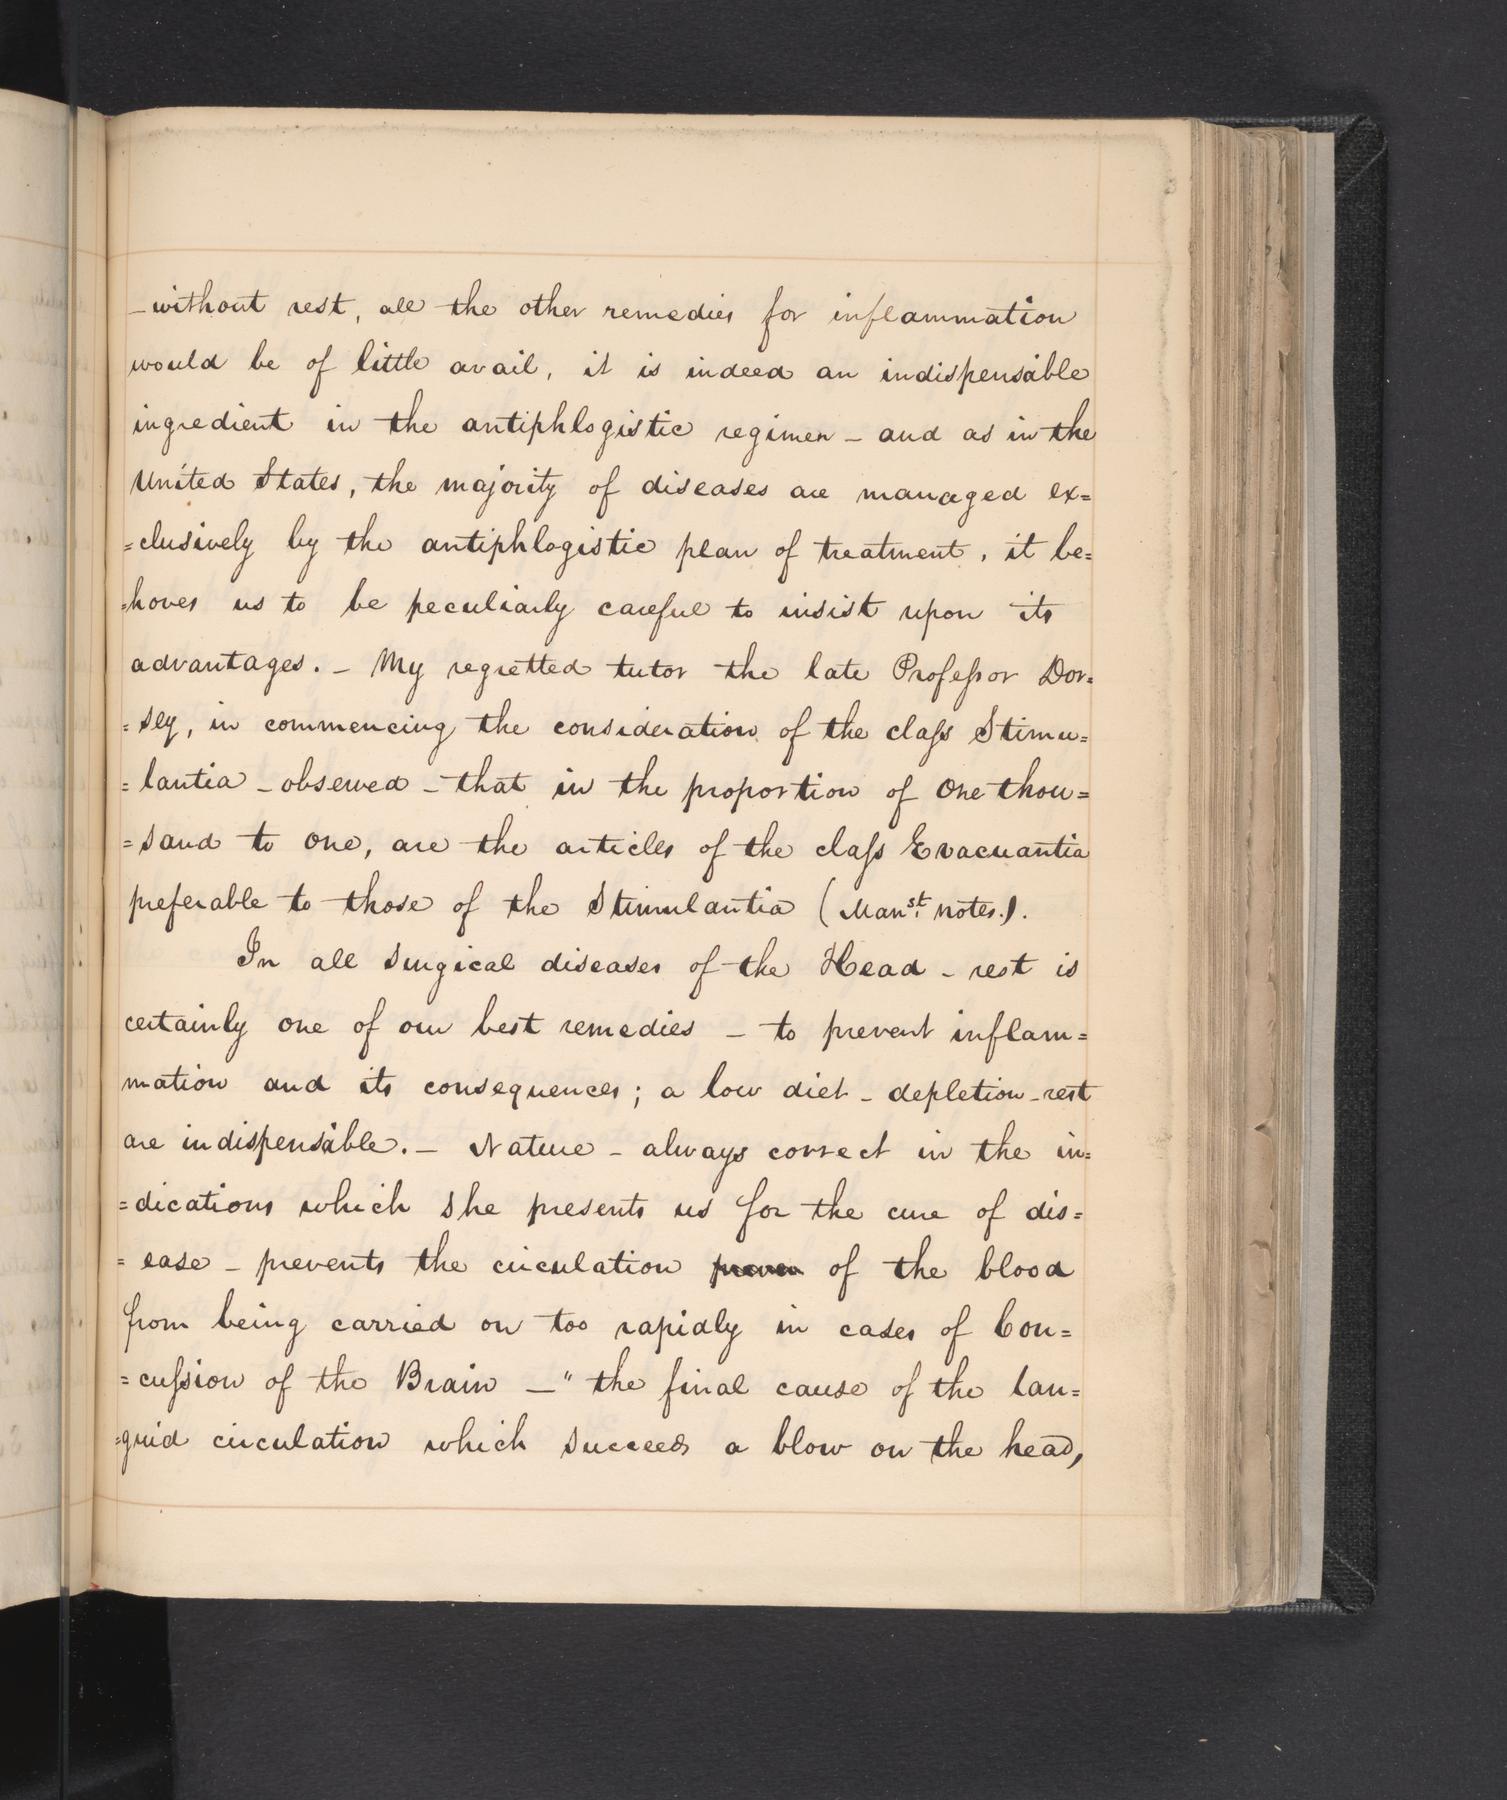 –without rest, all the other remedies for inflammation
would be of little avail, it is indeed an indispensable
ingredient in the antiphlogistic regimen – and as in the
United States, the majority of diseases are managed ex=
=clusively by the antiphlogistic plan of treatment, it be=
=hoves us to be peculiarly careful to insist upon its
advantages. – My regretted tutor the late Profeſsor Dor=
=sey, in commencing the consideration of the claſs Stimu=
=lantia – observed – that in the proportion of one thou=
=sand to one, are the articles of the claſs Evacuantia
preferable to those of the Stimulantia (Manst. notes.).
In all surgical diseases of the Head – rest is
certainly one of our best remedies – to prevent inflam=
mation and its consequences; a low diet – depletion – rest
are indispensable. – Nature – always correct in the in=
=dications which she presents us for the cure of dis=
=ease – prevents the circulation preven of the blood
from being carried on too rapidly in cases of Con=
=cuſsion of the Brain – " the final cause of the lan=
=guid circulation which succeeds a blow on the head,